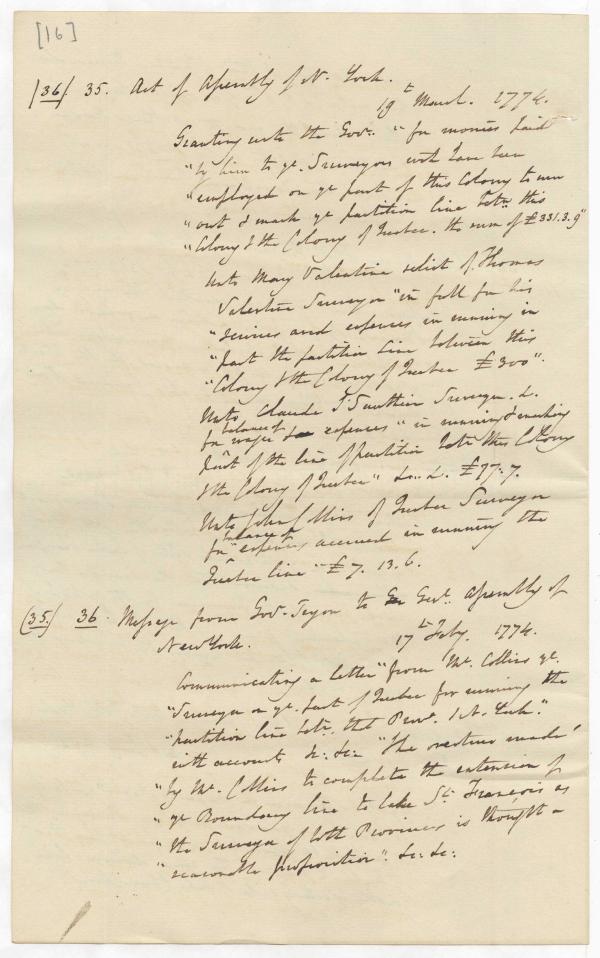 [16]
(36) 35. Act of Assembly of N. York.
19th March. 1774.
Granting unto the Govr. "for monies paid
"by him to ye. Surveyors who have been
"employed on ye part of this Colony to run
"out & mark ye partition line betn. this
"Colony & the Colony of Quebec. the sum of £331.3.9"
Unto Mary Valentine relict of Thomas
Valentine Surveyor "in full for his
"services and expences in running in
"part the partition Line between this
"Colony & the Colony of Quebec £300".
Unto Claude J. Sauthier Surveyor. &.
balance of
for wages & expences "in running & marking
part of the line of partition betn. this Colony
& the Colony of Quebec" &c. &. £97.7.
Unto John Collins of Quebec Surveyor
balance of
for "expences accrued in running the
Quebec line" £7. 13. 6.
(35.) 36. Message from Govr. Tryon to Genl. Assembly of
New York.
17th Feby. 1774.
Communicating a letter "from Mr. Collins ye.
"Surveyor on ye. part of Quebec for running the
"partition line betn. that Prove. & N. York."
with accounts &c: &c: "The overture made
"by Mr. Collins to complete the extension of
"ye Boundary line to lake St. François as
"the Surveyor of both Provinces is thought a
"reasonable proposition". &c: &c: